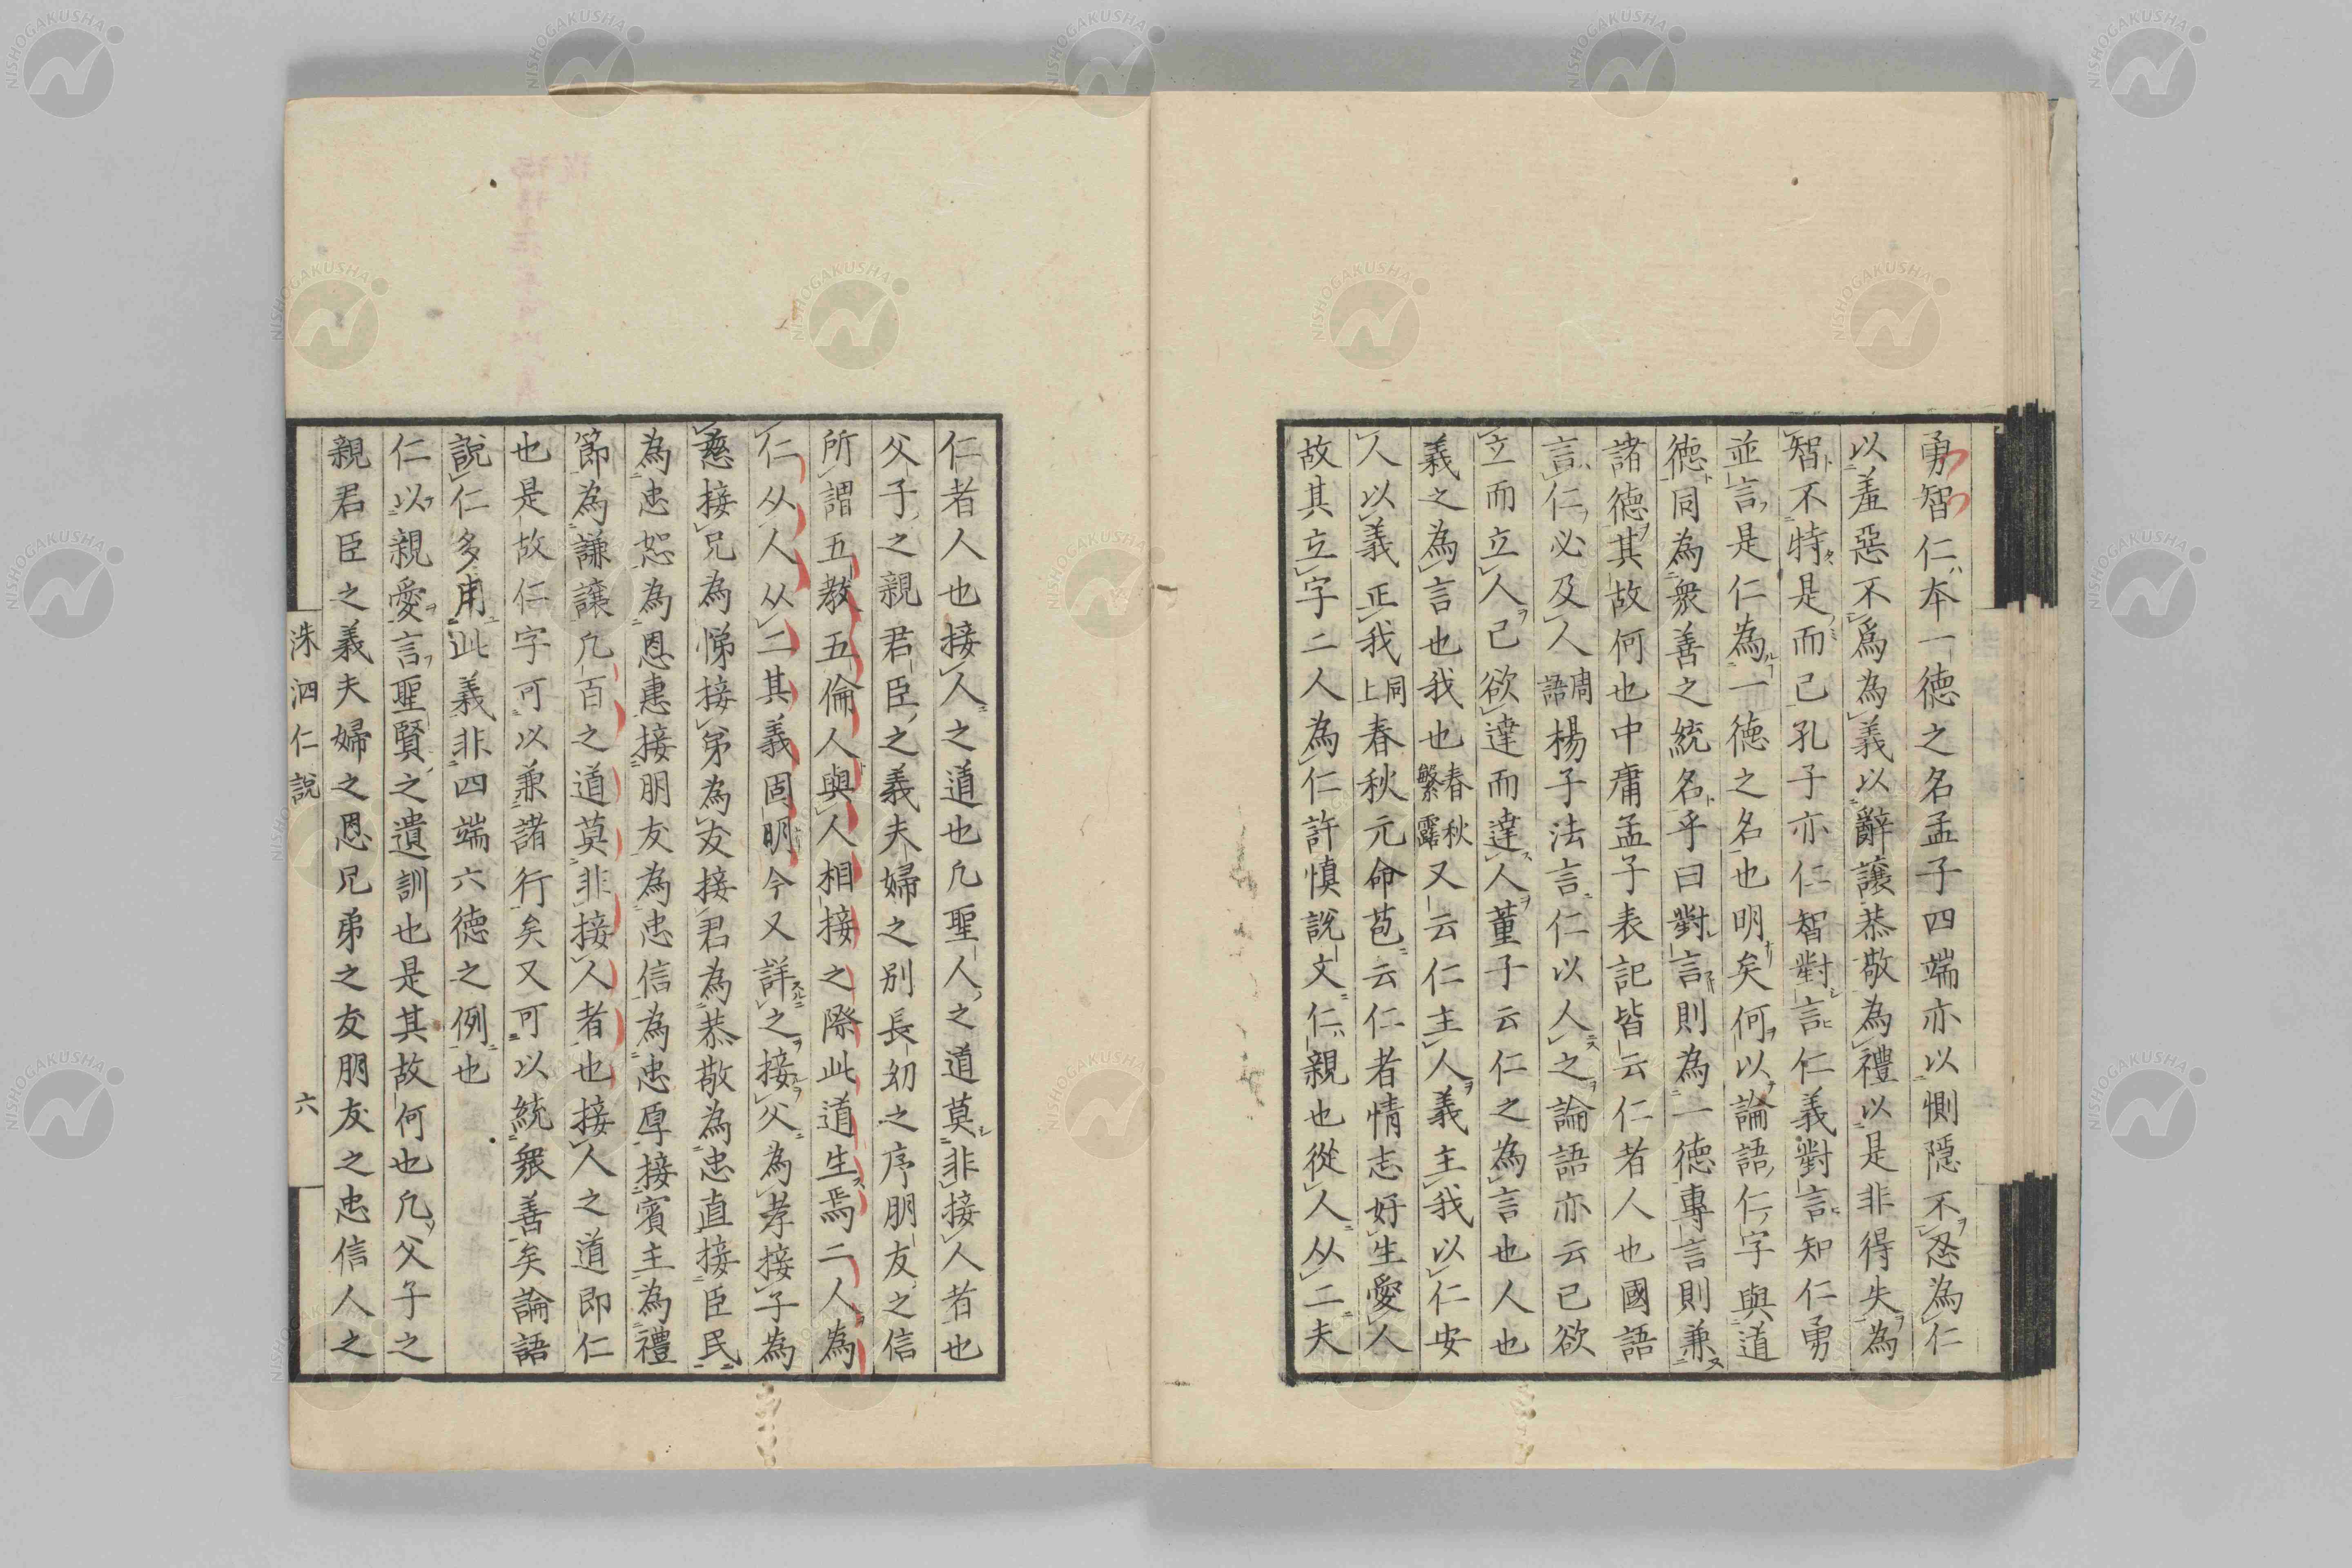 勇智仁本一徳之名孟子四端亦以惻隠不忍為仁
以羞惡不爲為義以辭讓恭敬為禮以是非得失為
智不特是而已孔子亦仁智對言仁義對言知仁勇
並言是仁為一徳之名也明矣何以論語仁字與道
徳同為衆善之統名乎曰對言則為一徳專言則兼
諸徳其故何也中庸孟子表記皆云仁者人也國語
言仁必及人周語楊子法言仁以人之論語亦云己欲
立而立人己欲達而達人董子云仁之為言也人也
義之為言也我也春秋繁露又云仁主人義主我以仁安
人以義正我同上春秋元命苞云仁者情志好生愛人
故其立字二人為仁許慎說文仁親也從人从二夫
仁者人也接人之道也凢聖人之道莫非接人者也
父子之親君臣之義夫婦之别長幼之序朋友之信
所謂五教五倫人與人相接之際此道生焉二人為
仁从人从二其義固明今又詳之接父為孝接子為
慈接兄為悌接弟為友接君為恭敬為忠直接臣民
為忠恕為恩惠接朋友為忠信為忠厚接賓主為禮
節為謙讓凢百之道莫非接人者也接人之道即仁
也是故仁字可以兼諸行矣又可以統衆善矣論語
說仁多用此義非四端六徳之例也
仁以親愛言聖賢之遺訓也是其故何也凢父子之
親君臣之義夫婦之恩兄弟之友朋友之忠信人之
洙泗仁說
六
NISHOGAKUSHA